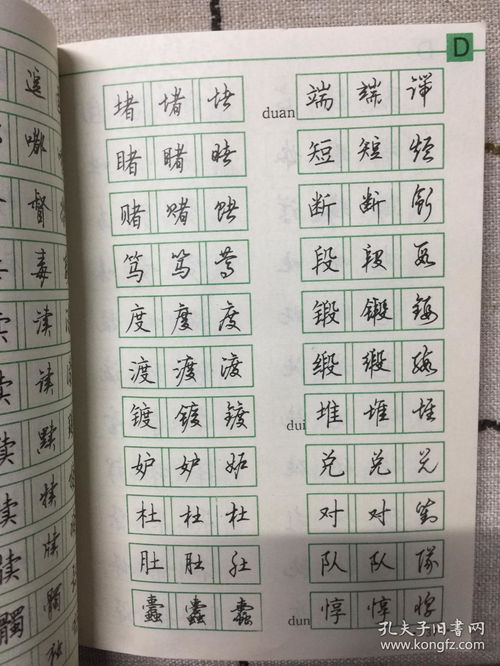 D
嘟
督
毒
读
读
黩
犊
牍
髑
堵 堵 堵
睹 睹 睹
赌 赌 赌
笃 笃 笃
度 度 度
渡 渡 渡
镀 镀 镀
妒 妒 妒
杜 杜 杜
肚 肚 肚
蠹 蠹 蠹
duan 端 端 端
短 短 短
断 断 断
段 段 段
锻 锻 锻
缎 缎 缎
dui 堆 堆 堆
兑 兑 兑
对 对 對
队 队 隊
dun 惇 惇 惇
孔夫子旧书网
www.kongfz.com